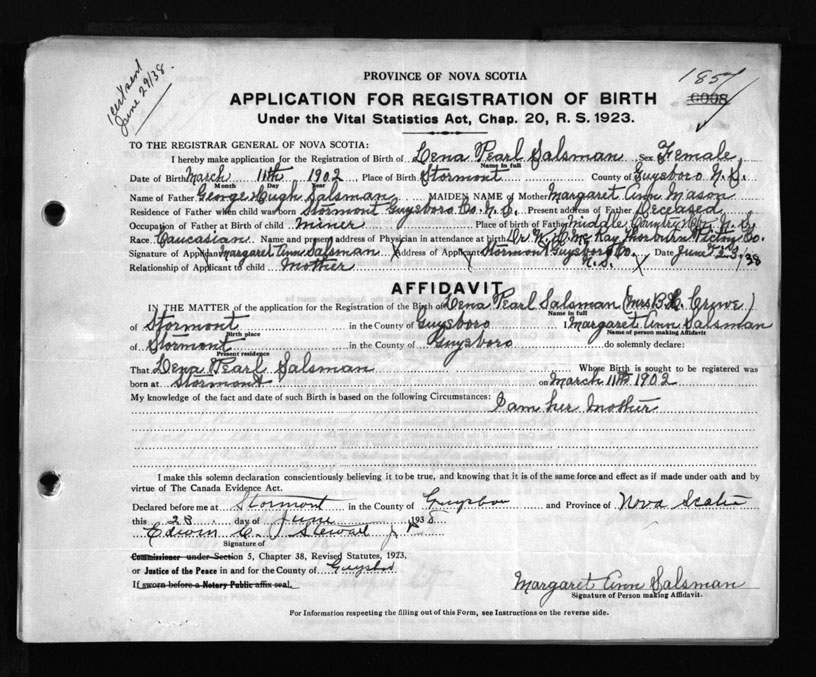 June 29/38.
PROVINCE OF NOVA SCOTIA
1857
APPLICATION FOR REGISTRATION OF BIRTH
6008
Under the Vital Statistics Act, Chap. 20, R. S. 1923.
TO THE REGISTRAR GENERAL OF NOVA SCOTIA:
I hereby make application for the Registration of Birth of Lena Pearl Salsman Sex Female
Name in full
Date of Birth March 11th 1902 Place of Birth Stormont County of Guysboro N.S.
Month Day Year
Name of Father George Hugh Salsman MAIDEN NAME of Mother Margaret Ann Mason
Residence of Father when child was born Stormont Guysboro Co. N.S. Present address of Father Deceased
Occupation of Father at Birth of child miner Place of birth of Father Middle Country N. S.
Race Caucasian Name and present address of Physician in attendance at birth Dr. McKay Thorburn Pictou Co.
Signature of Applicant Margaret Ann Salsman X Address of Applicant Stormont Guysboro Co. N.S. X Date June 23/38
Relationship of Applicant to child mother
AFFIDAVIT
IN THE MATTER of the application for the Registration of the Birth of Lena Pearl Salsman (Mrs B.L. Crowe)
Name in full
of Stormont in the County of Guysboro I Margaret Ann Salsman
Birth place Name of person making Affidavit
of Stormont in the County of Guysboro do solemnly declare:
Present residence
That Lena Pearl Salsman Whose Birth is sought to be registered was
born at Stormont on March 11th 1902
My knowledge of the fact and date of such Birth is based on the following Circumstances: I am her mother
I make this solemn declaration conscientiously believing it to be true, and knowing that it is of the same force and effect as if made under oath and by
virtue of The Canada Evidence Act.
Declared before me at Stormont in the County of Guysboro and Province of Nova Scotia
this 28 day of June 1938
Edwin C. Stewart J P
Signature of
Commissioner under Section 5, Chapter 38, Revised Statutes, 1923,
or Justice of the Peace in and for the County of Guysboro
If sworn before a Notary Public affix seal.
Margaret Ann Salsman
Signature of Person making Affidavit.
For Information respecting the filling out of this Form, see Instructions on the reverse side.